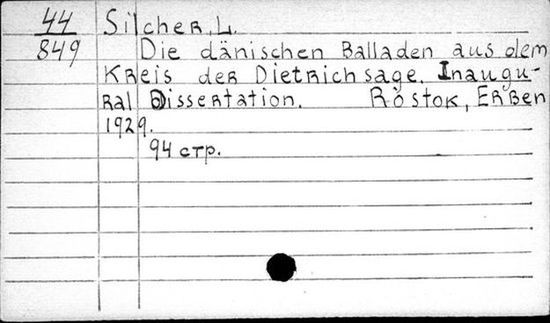 44 Silcher, L.
849 Die dänischen Balladen aus dem
Kreis der Dietrichsage. Inaugu-
ral Dissertation. Röstok, Erben
1929.
94 стр.